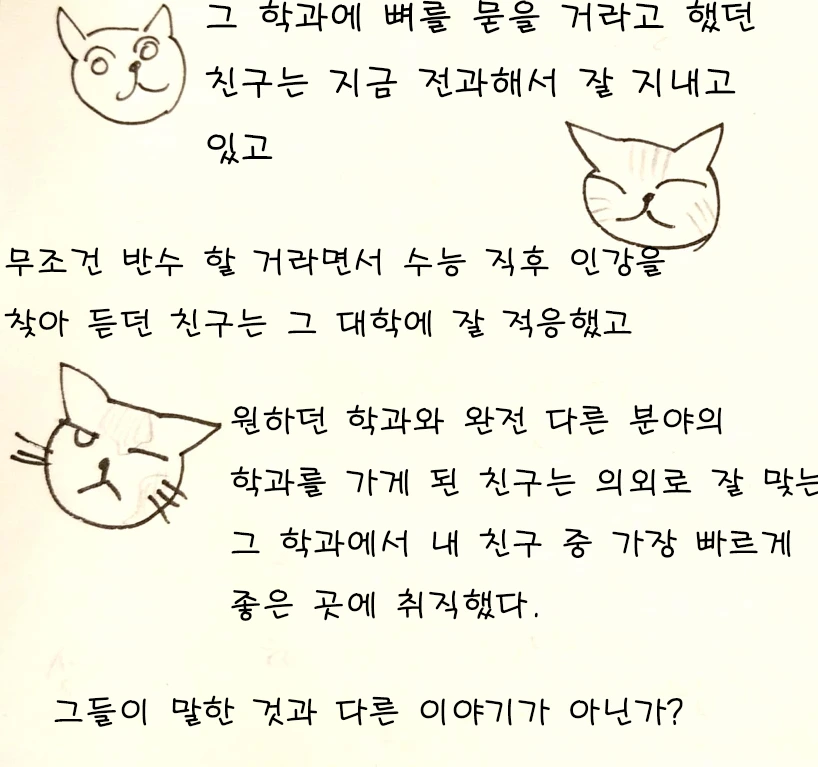 그 학과에 뼈를 묻을 거라고 했던
친구는 지금 전과해서 잘 지내고
있고
무조건 반수 할 거라면서 수능 직후 인강을
찾아 듣던 친구는 그 대학에 잘 적응했고
원하던 학과와 완전 다른 분야의
학과를 가게 된 친구는 의외로 잘 맞는
그 학과에서 내 친구 중 가장 빠르게
좋은 곳에 취직했다.
그들이 말한 것과 다른 이야기가 아닌가?